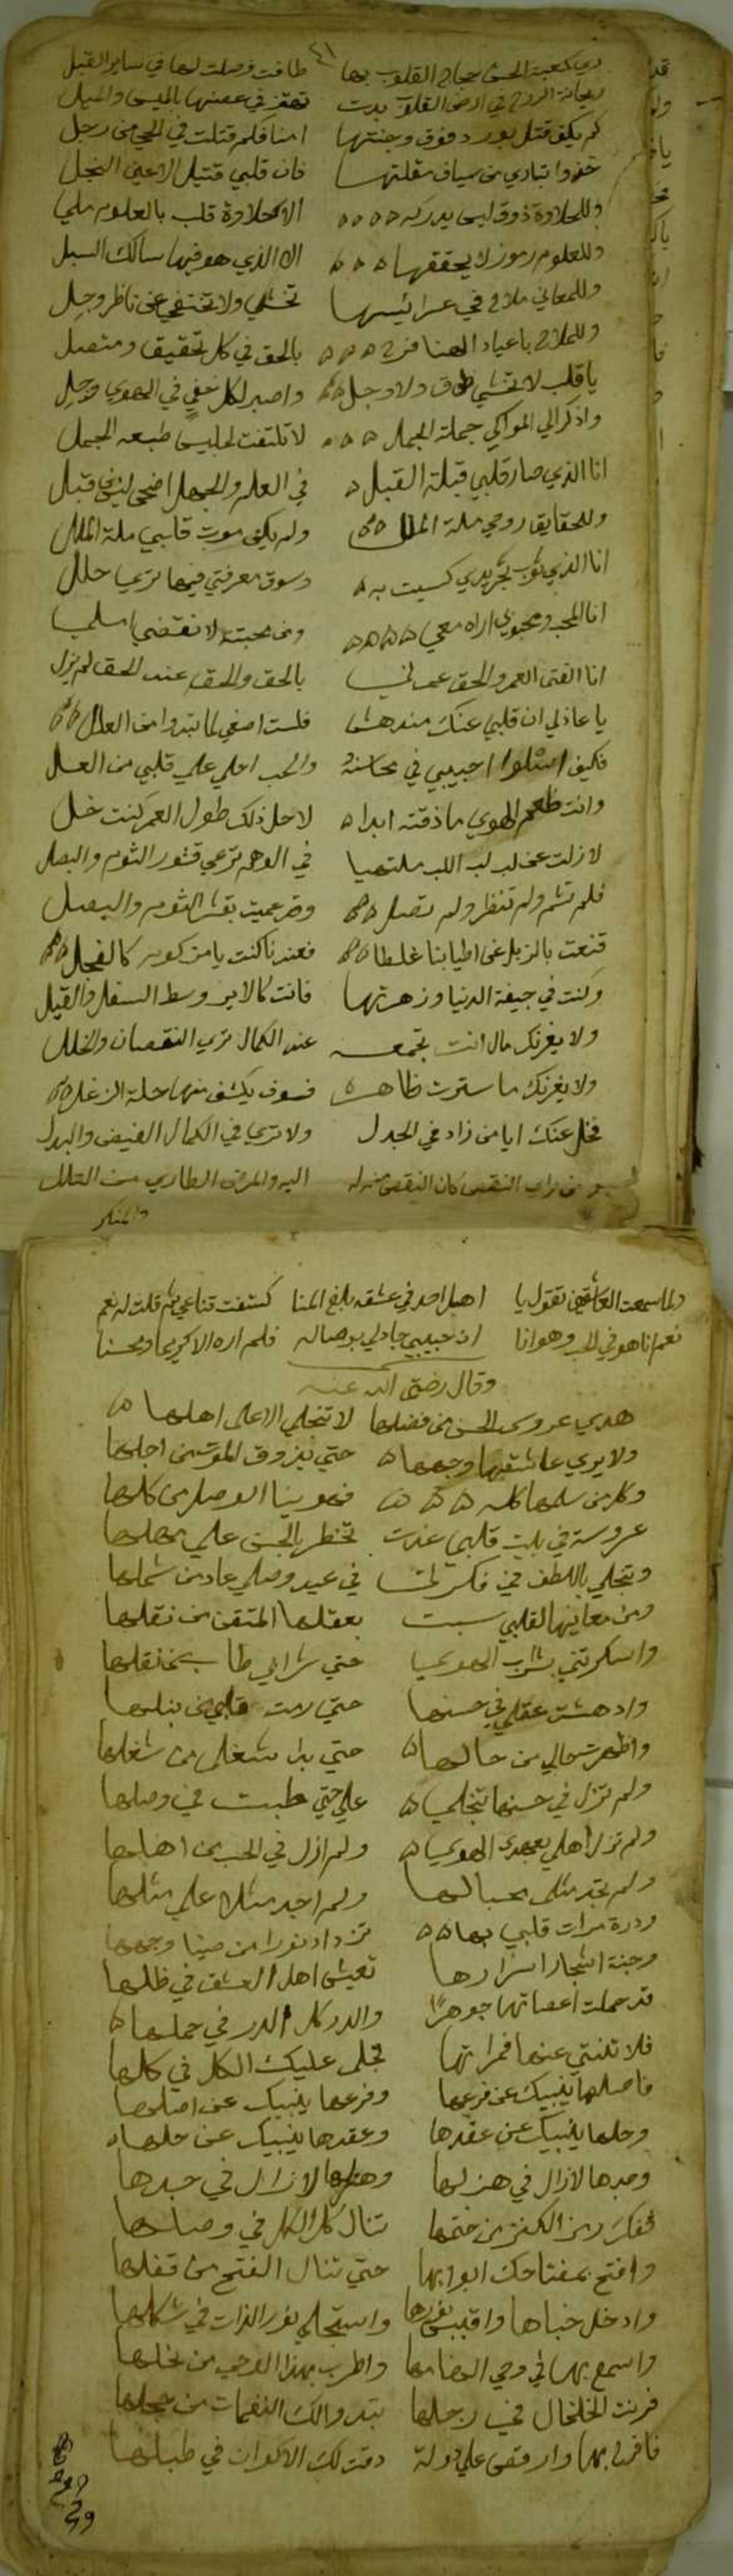 ٤١
ذي كعبة الحسن حجاج القلوب بها طافت وصلت لها في ساير القبل
ريحانة الروح في ارض القلوب بدت تهتز في غصنها بالميس والميل
كم يكفي قتل بورد فوق وجنتها امنا فكم قتلت في الحي من رجل
خذوا بثاري من سياف مقلتها فان قلبي قتيل الاعين النجل
وللحلاوة ذوق ليس يدركه الا حلاوة قلب بالعلوم ملي
وللعلوم رموز لا يحققها الا الذي هو فيها سالك السبل
وللمعاني ملاح في عرائيسها تجلي ولا تختفي عن ناظر وجل
وللملاح باعياد الهنا فرح بالحق في كل تحقيق ومتصل
يا قلب لا تخشي ولا وجل واصبر لكل خفي في الهوي وجل
واذكر الي المولي جملة الجمل لا تلتفت لجليس طبعه الجمل
انا الذي صار قلبي قبلة القبل في العلم والجهل اضحى ليس في قبل
وللحقايق روحي ملة الملل ولم يكن موت قلبي ملة الملل
انا الذي ثوب تجريدي كسيت به وسوق معرفتي فيها تري حلل
انا المحب ومحبوبي اراه معي ومن محبته لا تنقضي املي
انا الفتى العمر والحق عمرني بالحق والحق عند الحق لم يزل
يا عاذلي ان قلبي عنك مندهش فلست اصغي لما تبدوا من العذل
فكيف اسلوا حبيبي في محاسنه والحب احلي علي قلبي من العسل
وانت طعم الهوي ما ذقته ابدا لاجل ذلك طول العمر كنت خل
لا زلت عن لب لب اللب ملتهيا في الوهم ترعي قشور الثوم والبصل
فلم تشم ولم تنظر ولم تصل وقد عميت بقشر الثوم والبصل
قنعت بالزبل عن اطيابنا غلطا فعندنا كنت يا مزكوم كالفجل
وكنت في جيفة الدنيا وزهرتها فانت كالاير وسط السفل والقيل
ولا يغرنك مال انت تجمعه عند الكمال تري النقصان والخلل
ولا يغرنك ما سترت ظاهره فسوف يكشف منها حلة الزغل
فخل عنك ايا من زاد في الجدل ولا تري في الكمال الغيض والبدل
من راي النقص كان النقص منه له اليه والمرض الطاري من العلل
والمنكر
ولما سمعت العاشقين تقول يا اهيل احد في عشقه بلغ المنا كشفت قناعي ثم قلت له نعم
نعم انا هو في الحب وهو انا ان حبيبي جاد لي بوصاله فلم اره الا كريما ومحسنا
وقال رضي الله عنه
هدي عروس الحسن من فضلها لا تنجلي الا علي اهلها
ولا يري عاشقها وجهها حتي يذوق الموت من اجلها
وكل من سلمها كله فهو ينال الوصل من كلها
عروسة في بيت قلبي غدت تخطر بالحسن علي مهلها
وتنجلي باللطف في فكرتي في عيد وصلي عاد من شملها
ومن معانيها لقلبي سبت بعقلها المتقن من نقلها
واسكرتني بشراب الهوي حتي شرابي طاب من نقلها
وادهشت عقلي في حسنها حتي رمت قلبي من نبلها
واظهرت حالي من حالها حتي بدا شغلي من شغلها
ولم تزل في حسنها تنجلي علي حتي طبت في وصلها
ولم تزل اهلي بعهد الهوي ولم ازل في الحب من اهلها
ولم تجد مثلي محبا لها ولم اجد مثلا علي مثلها
ودرة مرات قلبي بها تزداد نورا من ضيا وجهها
وجنة اشجار اسرارها تعيش اهل العشق في ظلها
قد حملت اغصانها جوهرا والدر كل الدر في حملها
فلا تفتني عنها ثمراتها تجلي عليك الكل في كلها
فاصلها ينبيك عن فرعها وفرعها ينبيك عن اصلها
وحلها ينبيك عن عقدها وعقدها ينبيك عن حلها
وجدها لا زال في هزلها وهزلها لا زال في جدها
ففك رمز الكنز من ختمها تنال كل الكل في وصلها
وافتح بمفتاحك ابوابها حتي تنال الفتح من قفلها
وادخل خباها واقتبس نورها واستجلي نور الذات في شكلها
واسمع بها لي وحي انغامها واطرب بهذا الوحي من نحلها
فرنت الخلخال في رجلها تبدوا لك النغمات من حجلها
فافرح بها وارقص علي دولة دقت لك الاكوان في طبلها